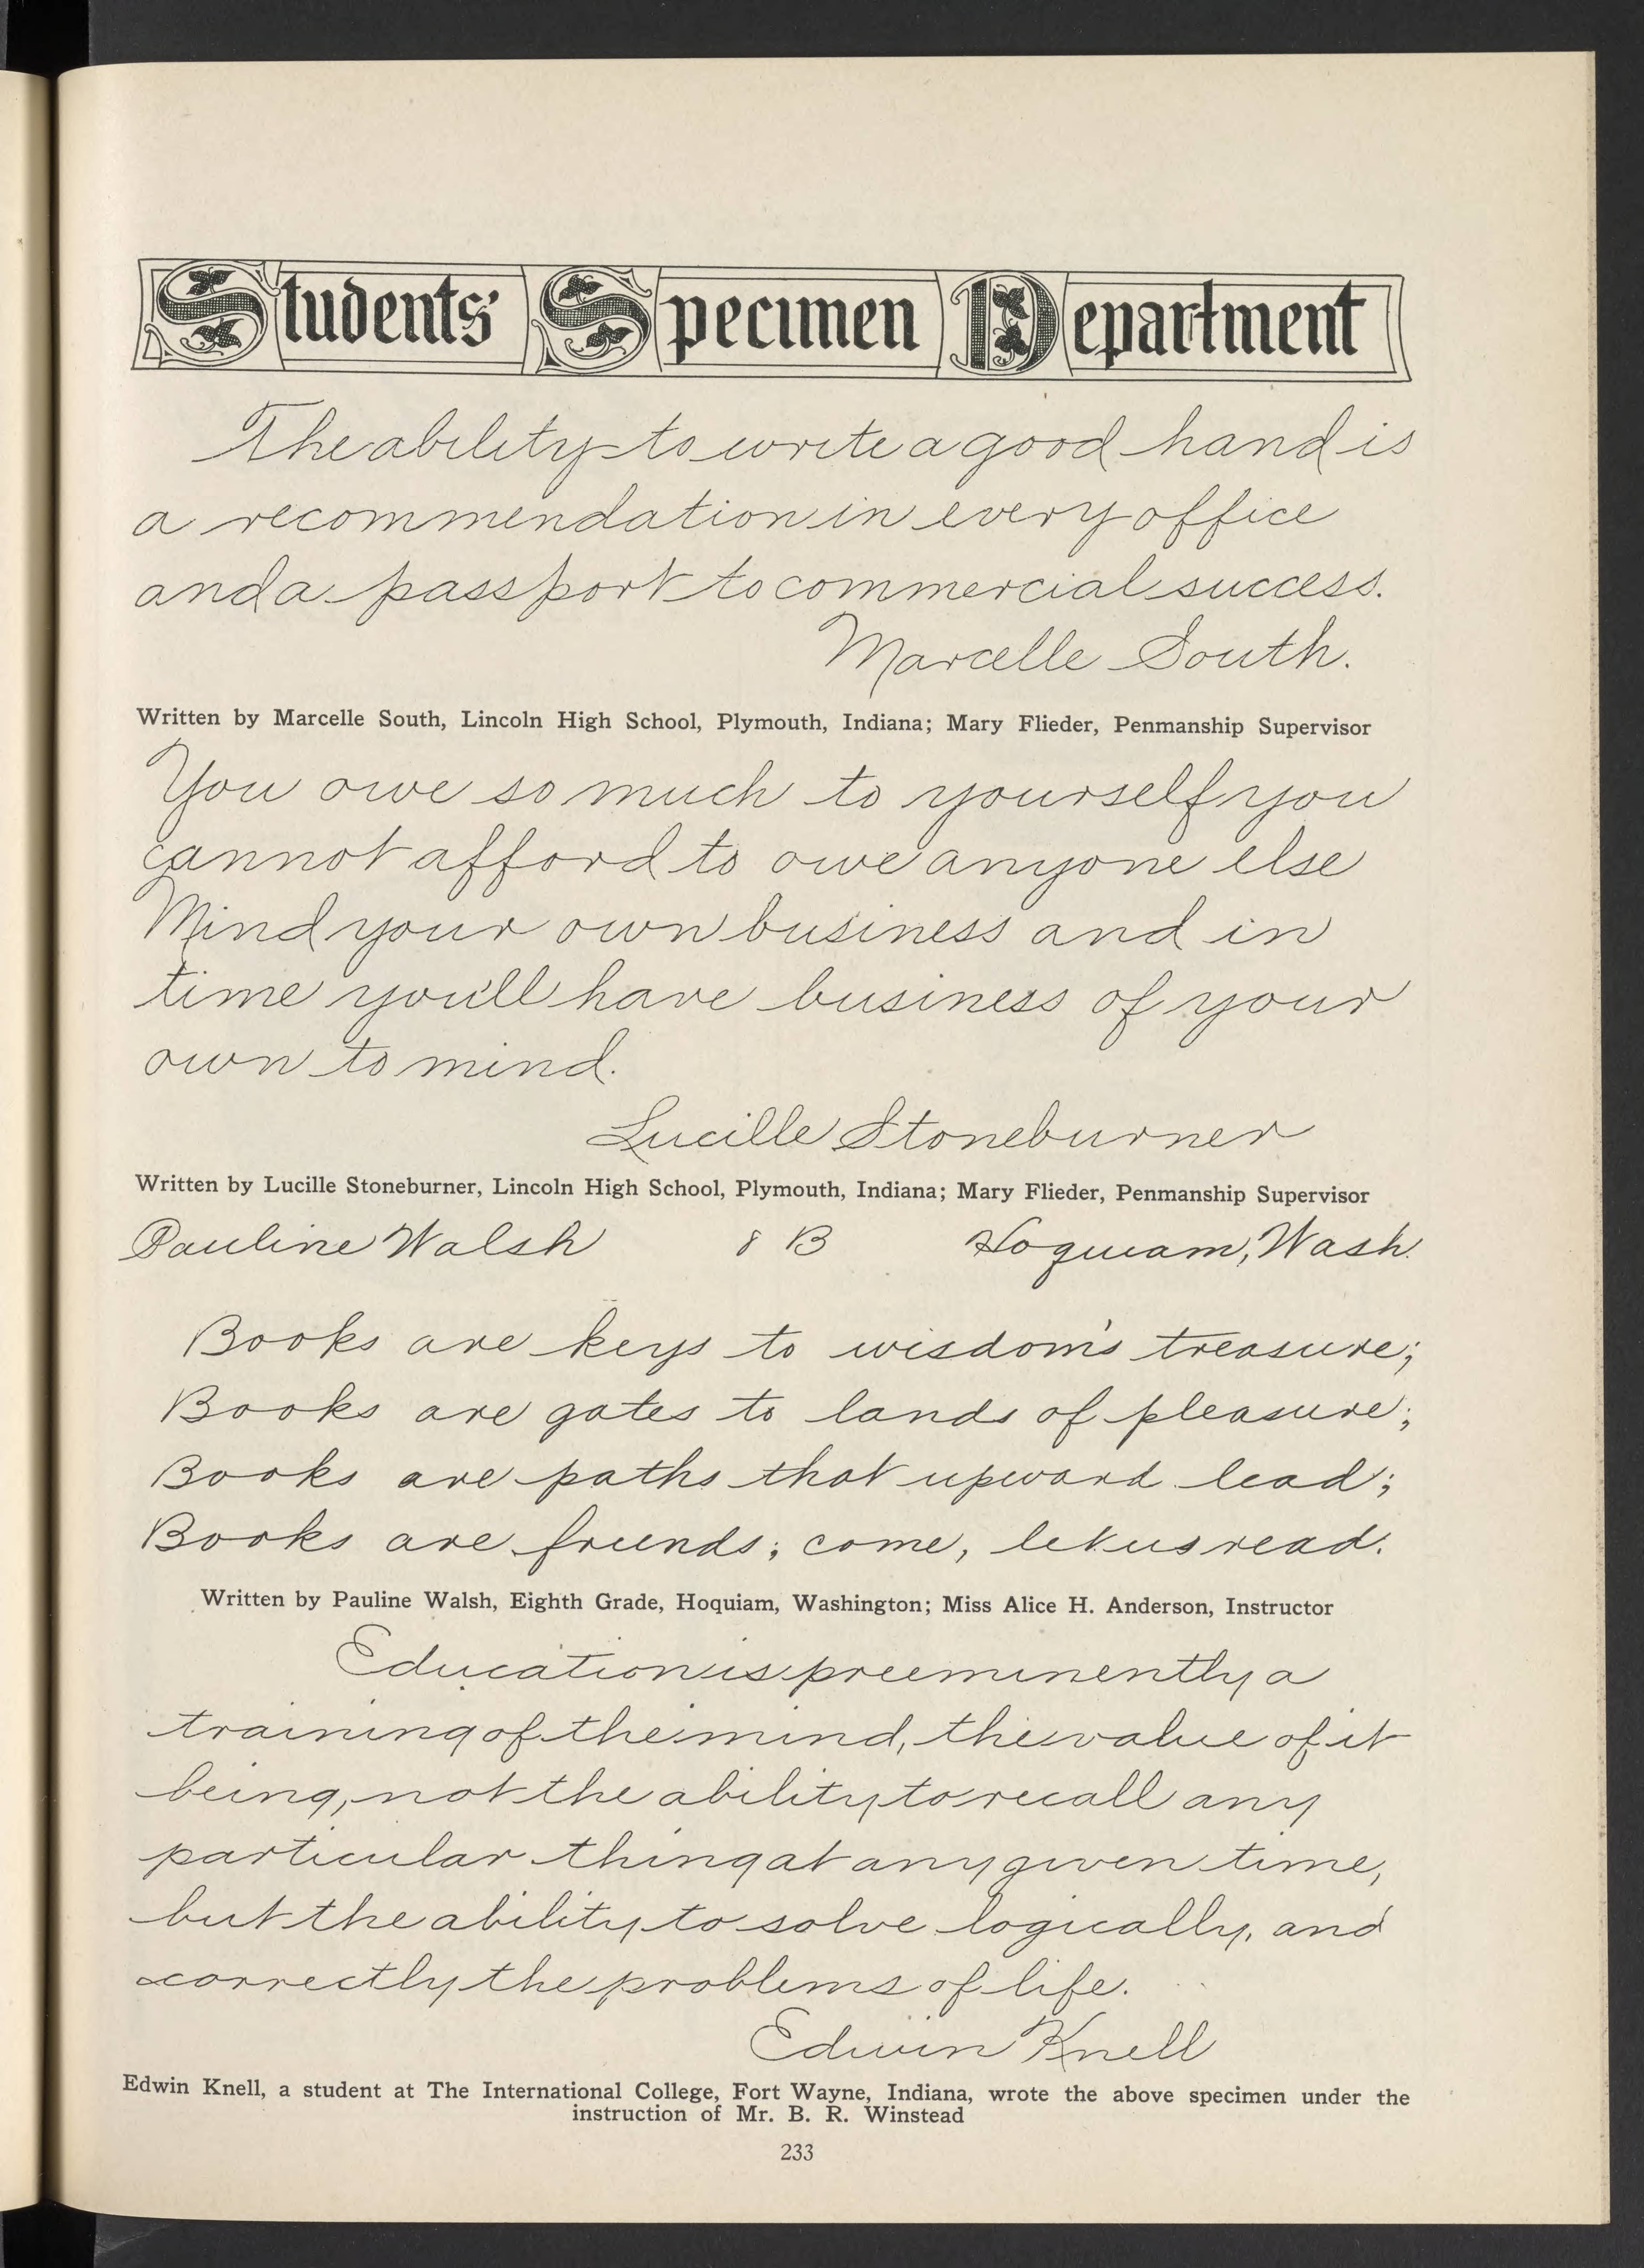 Students' Specimen Department
The ability to write a good hand is
a recommendation in every office
and a passport to commercial success.
Marcelle South.
Written by Marcelle South, Lincoln High School, Plymouth, Indiana; Mary Flieder, Penmanship Supervisor
You owe so much to yourself you
cannot afford to owe anyone else
Mind your own business and in
time you'll have business of your
own to mind.
Lucille Stoneburner
Written by Lucille Stoneburner, Lincoln High School, Plymouth, Indiana; Mary Flieder, Penmanship Supervisor
Pauline Walsh 8 B Hoquiam, Wash.
Books are keys to wisdom's treasure;
Books are gates to lands of pleasure;
Books are paths that upward lead;
Books are friends; come, let us read.
Written by Pauline Walsh, Eighth Grade, Hoquiam, Washington; Miss Alice H. Anderson, Instructor
Education is preeminently a
training of the mind, the value of it
being, not the ability to recall any
particular thing at any given time,
but the ability to solve logically, and
correctly the problems of life.
Edwin Knell
Edwin Knell, a student at The International College, Fort Wayne, Indiana, wrote the above specimen under the
instruction of Mr. B. R. Winstead
233